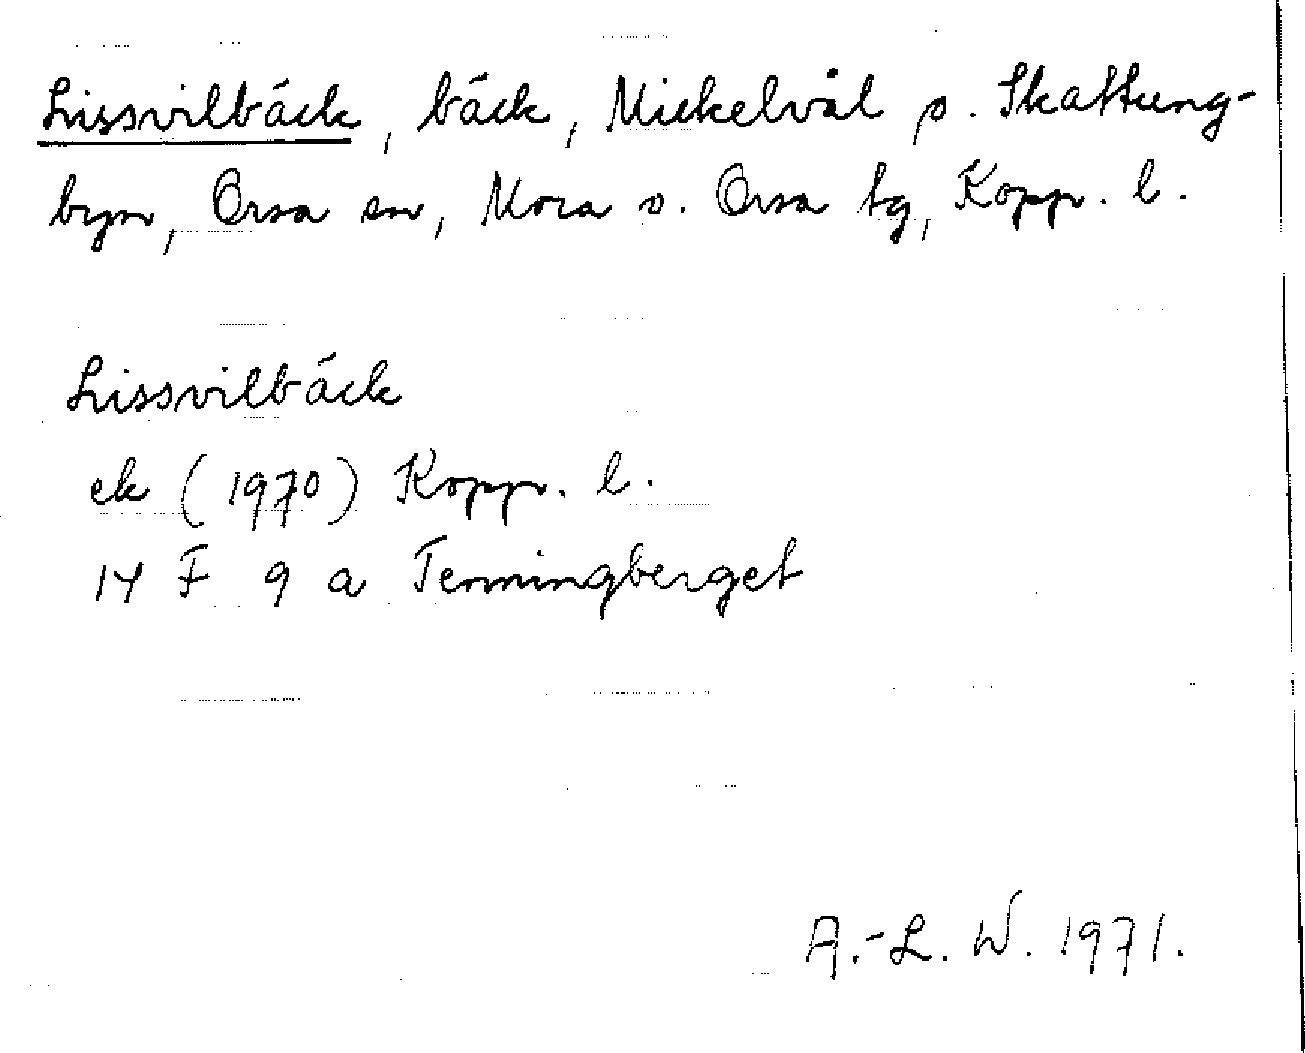 Lissvilbäck, bäck, Mickelvål, o. Skattung-
byn, Orsa sn, Mora o. Orsa tg, Kopp. l.
Lissvilbäck
ek (1970) Kopp. l.
14 F 9 a Tenningberget
A.-L. W. 1971.